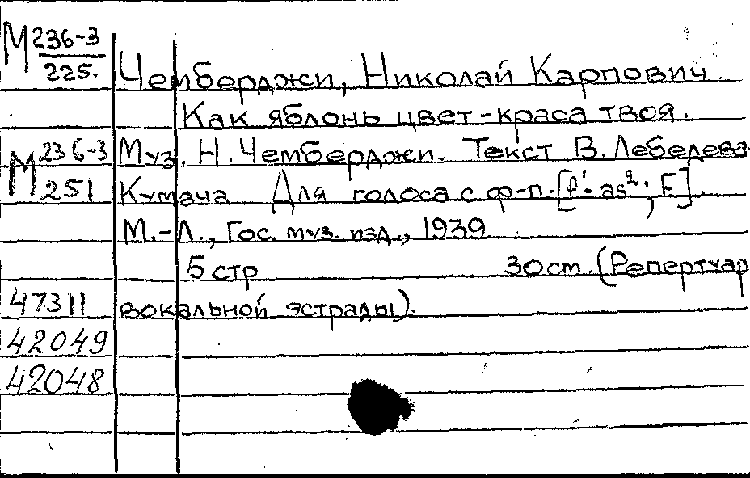 М 236-3
225.
Чемберджи, Николай Карпович
Как яблонь цвет-краса твоя.
М 236-3
251
Муз. Н. Чемберджи. Текст В. Лебедева-
Кумача Для голоса с ф-п. [f¹-as², F]
М.-Л., Гос. муз. изд., 1939
5 стр 30 см. (Репертуар
вокальной эстрады).
47311
42049
42048